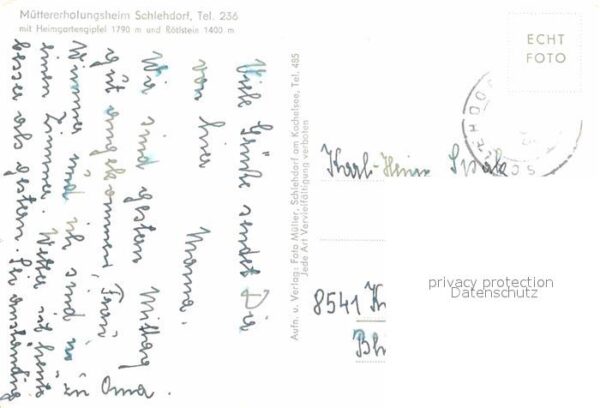 Müttererholungsheim Schlehdorf, Tel. 236
mit Heimgartengipfel 1790 m und Rötlstein 1400 m
Viele Grüße sendet Dir
von hier Mama.
Wir sind gestern Mittag
gut angekommen,
und ich sind in
einem Zimmer. Wetter ist heute
besser als gestern. Sei anständig
zu Oma.
Aufn. u. Verlag: Foto Müller, Schlehdorf am Kochelsee, Tel. 485
Jede Art Vervielfältigung verboten
ECHT
FOTO
Karl-Heinz
8541
privacy protection
Datenschutz